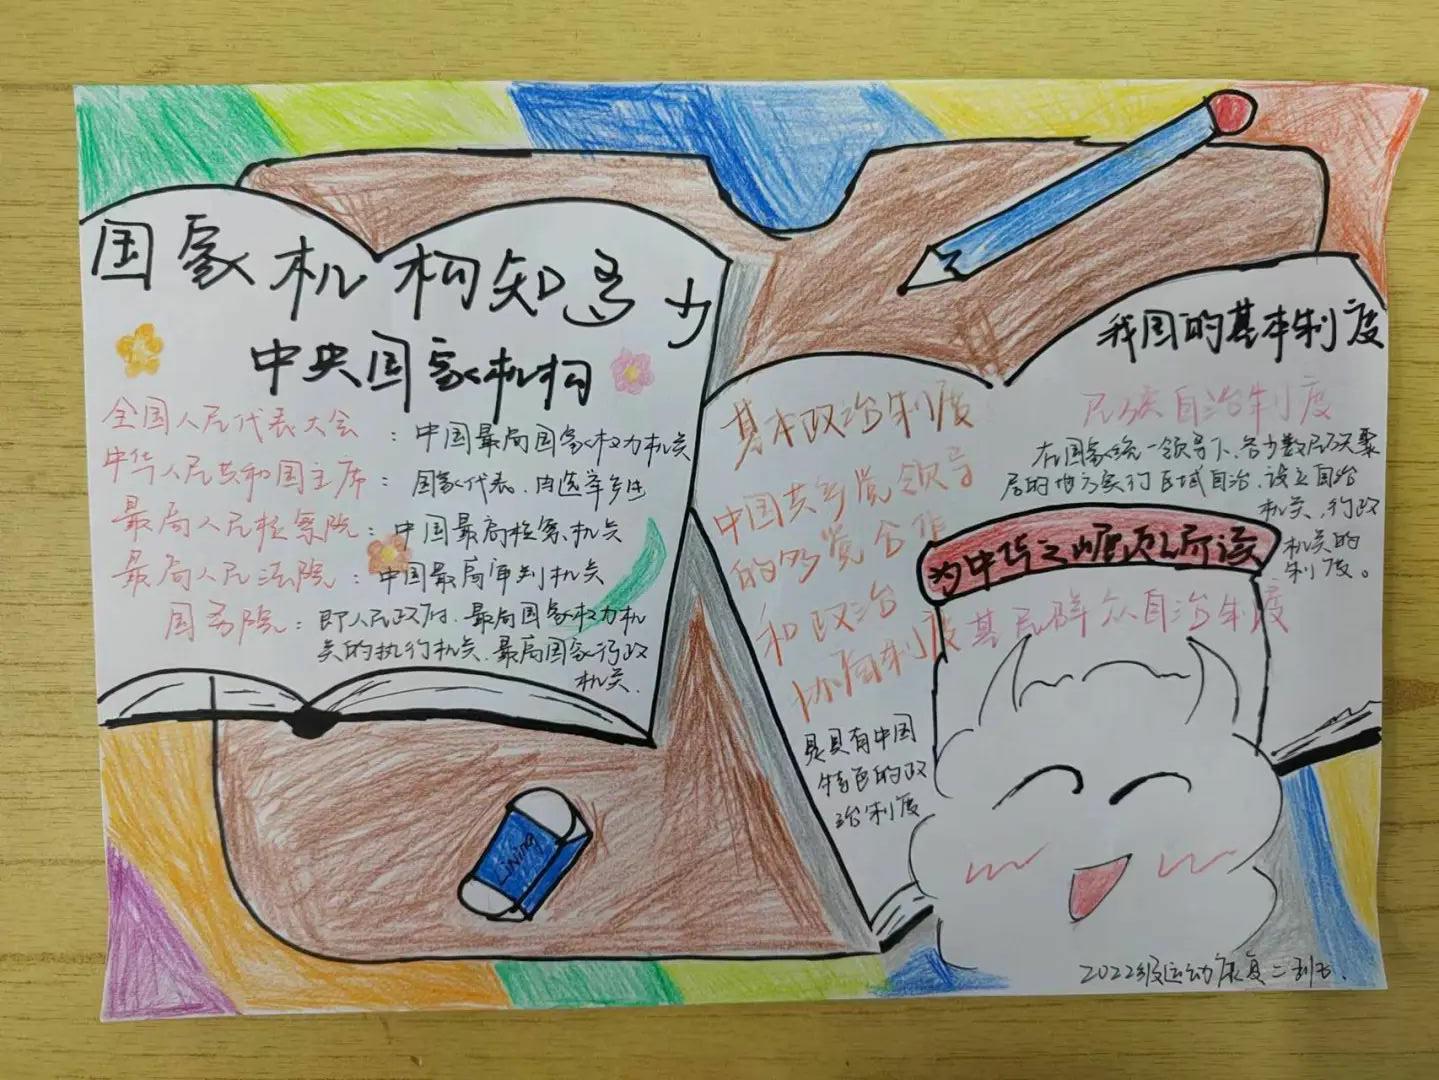 国家机构知多少
中央国家机构
全国人民代表大会：中国最高国家权力机关
中华人民共和国主席：国家代表、由选举产生
最高人民检察院：中国最高检察机关
最高人民法院：中国最高审判机关
国务院：即人民政府、最高国家权力机
关的执行机关、最高国家行政
机关.
Lining
我国的基本制度
基本政治制度
中国共产党领导
的多党合作
和政治
协商制度
是具有中国
特色的政
治制度
民族自治制度
在国家统一领导下、各少数民族聚
居的地方实行区域自治、设立自治
机关、行政
机关的
制度。
为中华之崛起而读
基民群众自治制度
2022级运动康复二